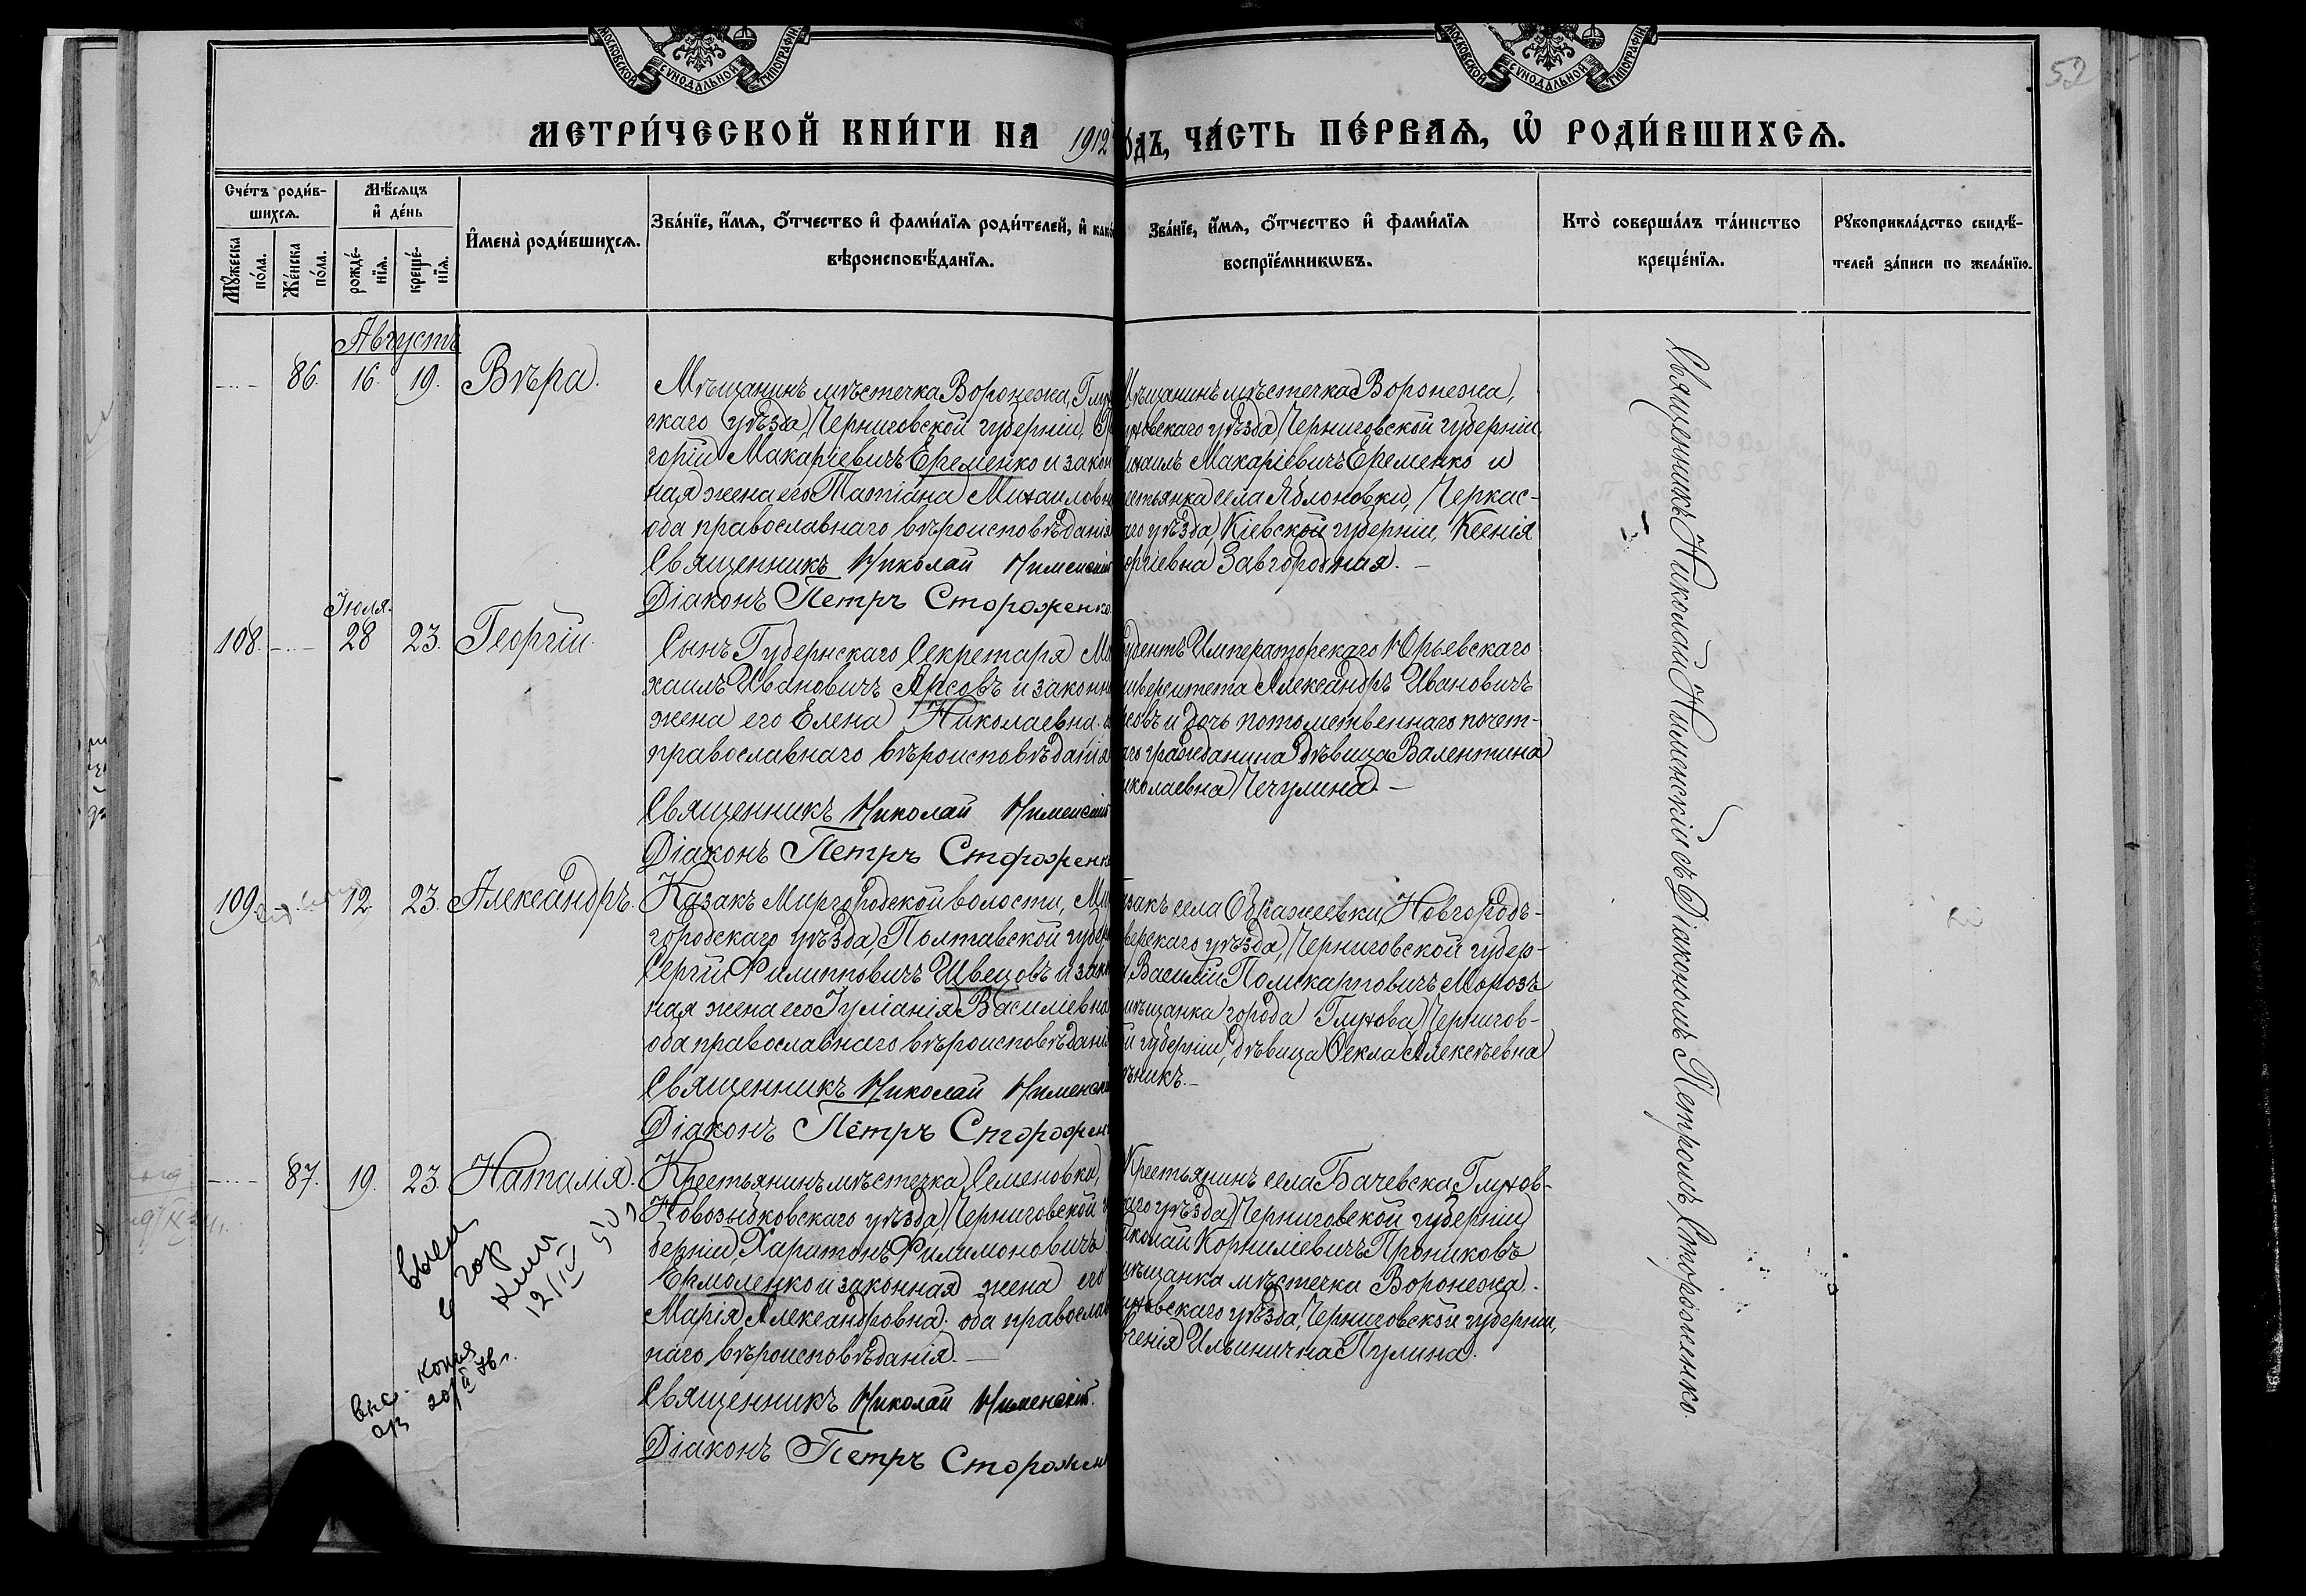 МОСКОВСКОЙ СУНОДАЛЬНОЙ ТИПОГРАФІИ
МОСКОВСКОЙ СУНОДАЛЬНОЙ ТИПОГРАФІИ
52
МЕТРИ́ЧЕСКОЙ КНИ́ГИ НА 1912
ОДЪ, ЧА́СТЬ ПЕ́РВАѦ, Ѡ҆ РОДИ́ВШИХСѦ.
Сче́тъ роди́в-
шихсѧ.
Мѣ́сѧцъ
и҆ де́нь
Мꙋ́жеска по́ла.
Же́нска по́ла.
рожде́-
нїѧ.
креще́-
нїѧ.
И҆мена̀ роди́вшихсѧ.
Зва́нїе, и҆́мѧ, ѻ҆́тчество и҆ фами́лїѧ роди́телей, и҆ како
вѣроисповѣ́данїѧ.
Зва́нїе, и҆́мѧ, ѻ҆́тчество и҆ фами́лїѧ
воспрїе́мникѡвъ.
Кто̀ соверша́лъ та́инство
креще́нїѧ.
Рꙋкоприкла́дство свидѣ́-
телей за́писи по жела́нїю.
Августъ
86. 16. 19. Вѣра.
Мѣщанинъ мѣстечка Воронежа, Глух
скаго уѣзда, Черниговской губерніи, Г
горій Макаріевичъ Еременко и закон
ная жена его Татіана Михаиловн
оба православнаго вѣроисповѣданія
Священникъ Николай Нименскій
Діаконъ Петръ Стороженко
Мѣщанинъ мѣстечка Воронежа,
уховскаго уѣзда, Черниговской губерніи
ихаилъ Макаріевичъ Еременко и
естьянка села Яблоновки, Черкас-
аго уѣзда, Кіевской губерніи, Ксенія
оргіевна Завгородная. —
Іюля.
108. 28 23. Георгій.
Сынъ Губернскаго Секретаря Ми
хаилъ Ивановичъ Арсовъ и законн
жена его Елена Николаевна. о
православнаго вѣроисповѣданія
Священникъ Николай Нименскій
Діаконъ Петръ Стороженк
удентъ Императорскаго Юрьевскаго
иверситета Александръ Ивановичъ
совъ и дочь потомственнаго почет-
аго гражданина дѣвица Валентина
иколаевна Чечулина. —
109. 12. 23. Александръ.
Казакъ Миргородской волости, Ми
городскаго уѣзда, Полтавской губер
Сергій Филипповичъ Швецовъ и закон
ная жена его Іуліанія Василіевна
оба православнаго вѣроисповѣдані
Священникъ Николай Нименскі
Діаконъ Петръ Стороженк
закъ села Ображеевки, Новгородъ-
верскаго уѣзда, Черниговской губер-
и Василій Поликарповичъ Морозъ
мѣщанка города Глухова, Чернигов-
й губерніи, дѣвица Ѳекла Алексѣевна
ѣникъ. —
87. 19. 23. Наталія.
Крестьянинъ мѣстечка Семеновки,
Новозыбковскаго уѣзда, Черниговской г
берніи, Харитонъ Филимоновичъ
Ермоленко и законная жена его
Марія Александровна. оба православ
наго вѣроисповѣданія. —
Священникъ Николай Нименскій.
Діаконъ Петръ Сторожен
Крестьянинъ села Бачевска, Глухов-
каго уѣзда, Черниговской губерніи
иколай Корниліевичъ Прониковъ
мѣщанка мѣстечка Воронежа,
уховскаго уѣзда, Черниговской губерніи,
генія Ильинична Пулина.
12/IV
копия
20/II 76 г.
Священникъ Николай Нименскій съ Діакономъ Петромъ Стороженко.